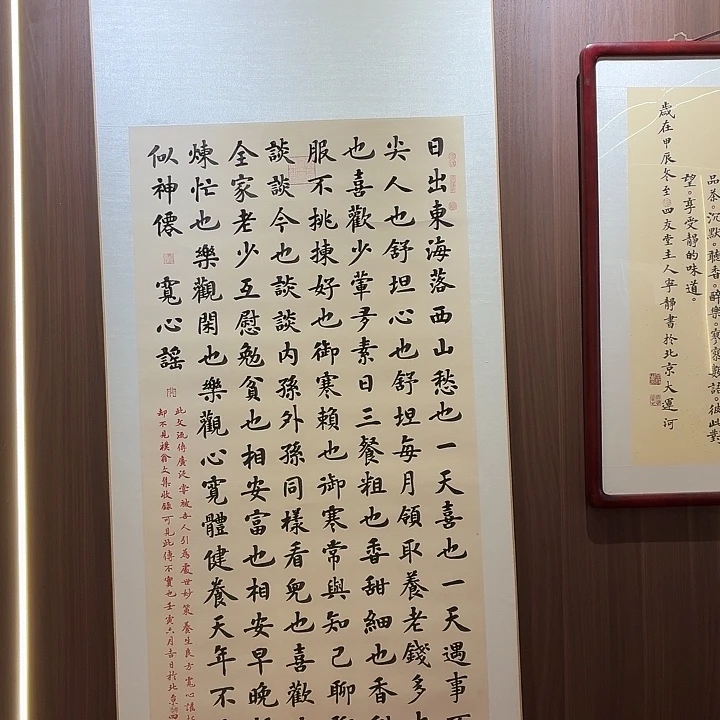 品茶。沉默。聽香。醉樂。寥寥數語。彼此對
望。享受靜的味道。
歲在甲辰冬至四友堂主人寧靜書於北京大運河
日出東海落西山愁也一天喜也一天遇事
尖人也舒坦心也舒坦每月領取養老錢多
也喜歡少葷多素日三餐粗也香甜細也香
服不挑揀好也御寒賴也御寒常與知己聊
談談今也談談内孫外孫同樣看兒也喜歡
全家老少互慰勉貧也相安富也相安早晚
煉忙也樂觀閑也樂觀心寬體健養天年不
似神僊 寬心謠
此文流傳廣泛常被吾人引為處世妙策養生良方寬心謠
却不見樸翁文集收錄可見此傳不實也壬寅六月吉日於北京